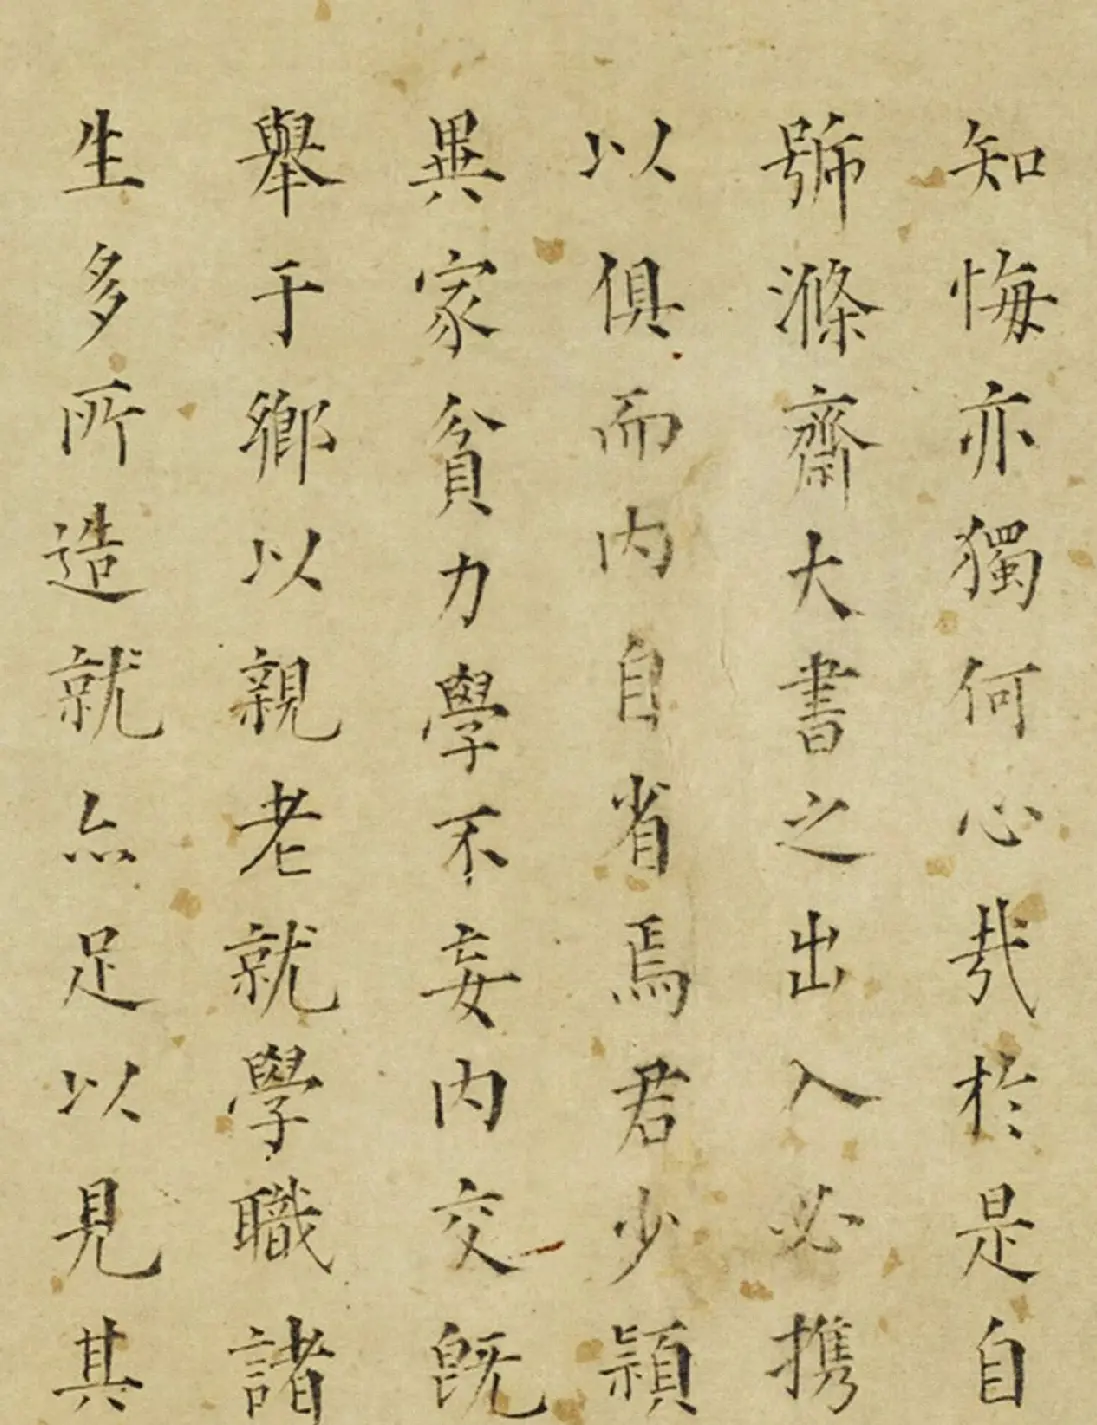 知悔亦獨何心哉於是自
號滌齋大書之出入必携
以俱而内自省焉君少穎
異家貧力學不妄内交既
舉于鄉以親老就學職諸
生多所造就亦足以見其